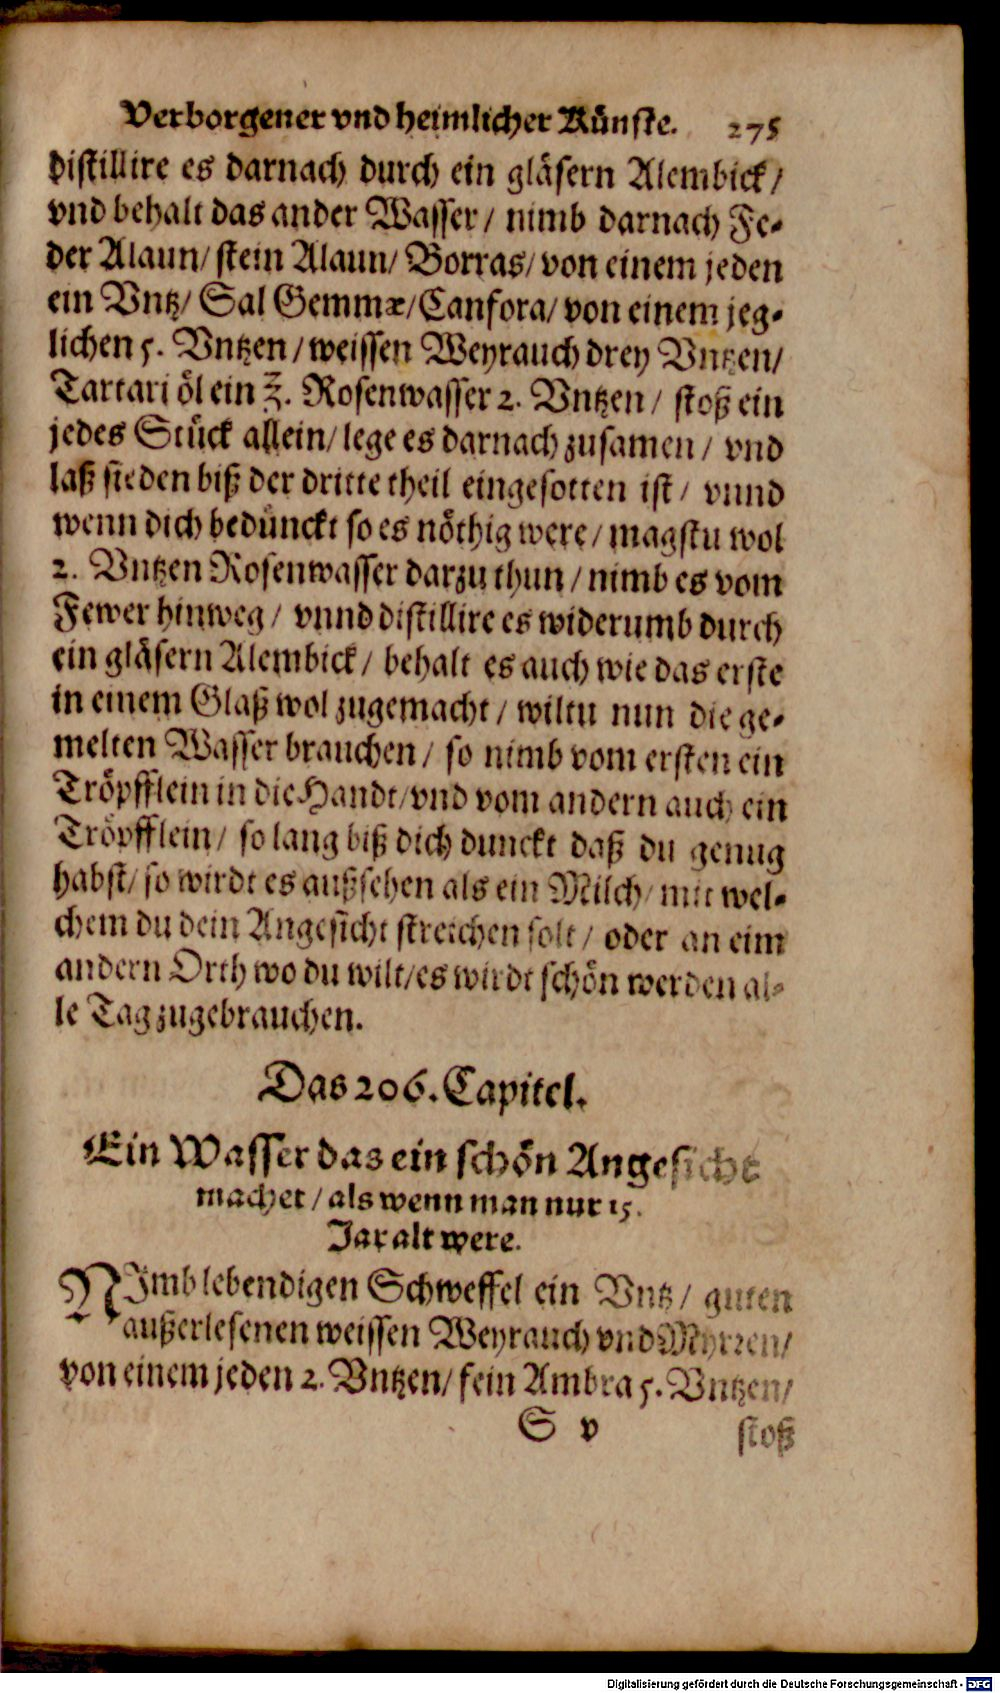 Verborgener vnd heimlicher Künste. 275
distillire es darnach durch ein gläsern Alembick/
vnd behalt das ander Wasser/ nimb darnach Fe-
der Alaun/ stein Alaun/ Borras/ von einem jeden
ein Vntz/ Sal Gemmæ/ Canfora/ von einem jeg-
lichen 5. Vntzen/ weissen Weyrauch drey Vntzen/
Tartari öl ein ℥. Rosenwasser 2. Vntzen/ stoß ein
jedes Stück allein/ lege es darnach zusamen/ vnd
laß sieden biß der dritte theil eingesotten ist/ vnnd
wenn dich bedünckt so es nöthig were/ magstu wol
2. Vntzen Rosenwasser darzu thun/ nimb es vom
Fewer hinweg/ vnnd distillire es widerumb durch
ein gläsern Alembick/ behalt es auch wie das erste
in einem Glaß wol zugemacht/ wiltu nun die ge-
melten Wasser brauchen/ so nimb vom ersten ein
Tröpfflein in die Handt/ vnd vom andern auch ein
Tröpfflein/ so lang biß dich dunckt daß du genug
habst/ so wirdt es außsehen als ein Milch/ mit wel-
chem du dein Angesicht streichen solt/ oder an eim
andern Orth wo du wilt/ es wirdt schön werden al-
le Tag zugebrauchen.
Das 206. Capitel.
Ein Wasser das ein schön Angesicht
machet/ als wenn man nur 15.
Jar alt were.
NImb lebendigen Schweffel ein Vntz/ guten
außerlesenen weissen Weyrauch vnd Myrren/
von einem jeden 2. Vntzen/ fein Ambra 5. Vntzen/
S v stoß
Digitalisierung gefördert durch die Deutsche Forschungsgemeinschaft - DFG